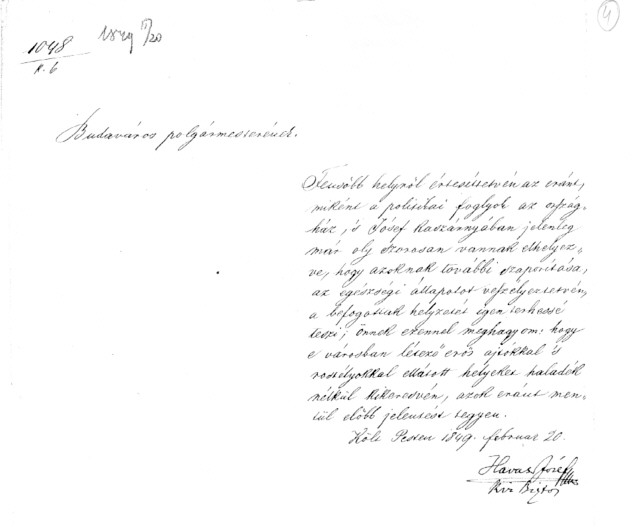 4
1048
k. 6
1849 II/20
Budaváros polgármesterének.
Felsőbb helyről értesíttetvén az eránt,
miként a politikai foglyok az ország-
ház, 's Jósef kaszárnyában jelenleg
már oly szorosan vannak elhelyez-
ve, hogy azoknak további szaporítása,
az egészségi állapotot veszélyeztetvén,
a befogottak helyzetét igen terhessé
teszi; önnek ezennel meghagyom: hogy
e városban létező erős ajtókkal 's
rostélyokkal ellátott helyeket haladék
nélkül kikeresvén, azok eránt men-
tül előbb jelentést tegyen.
Költ Pesten 1849. februar 20.
Havas József
Kir Biztos